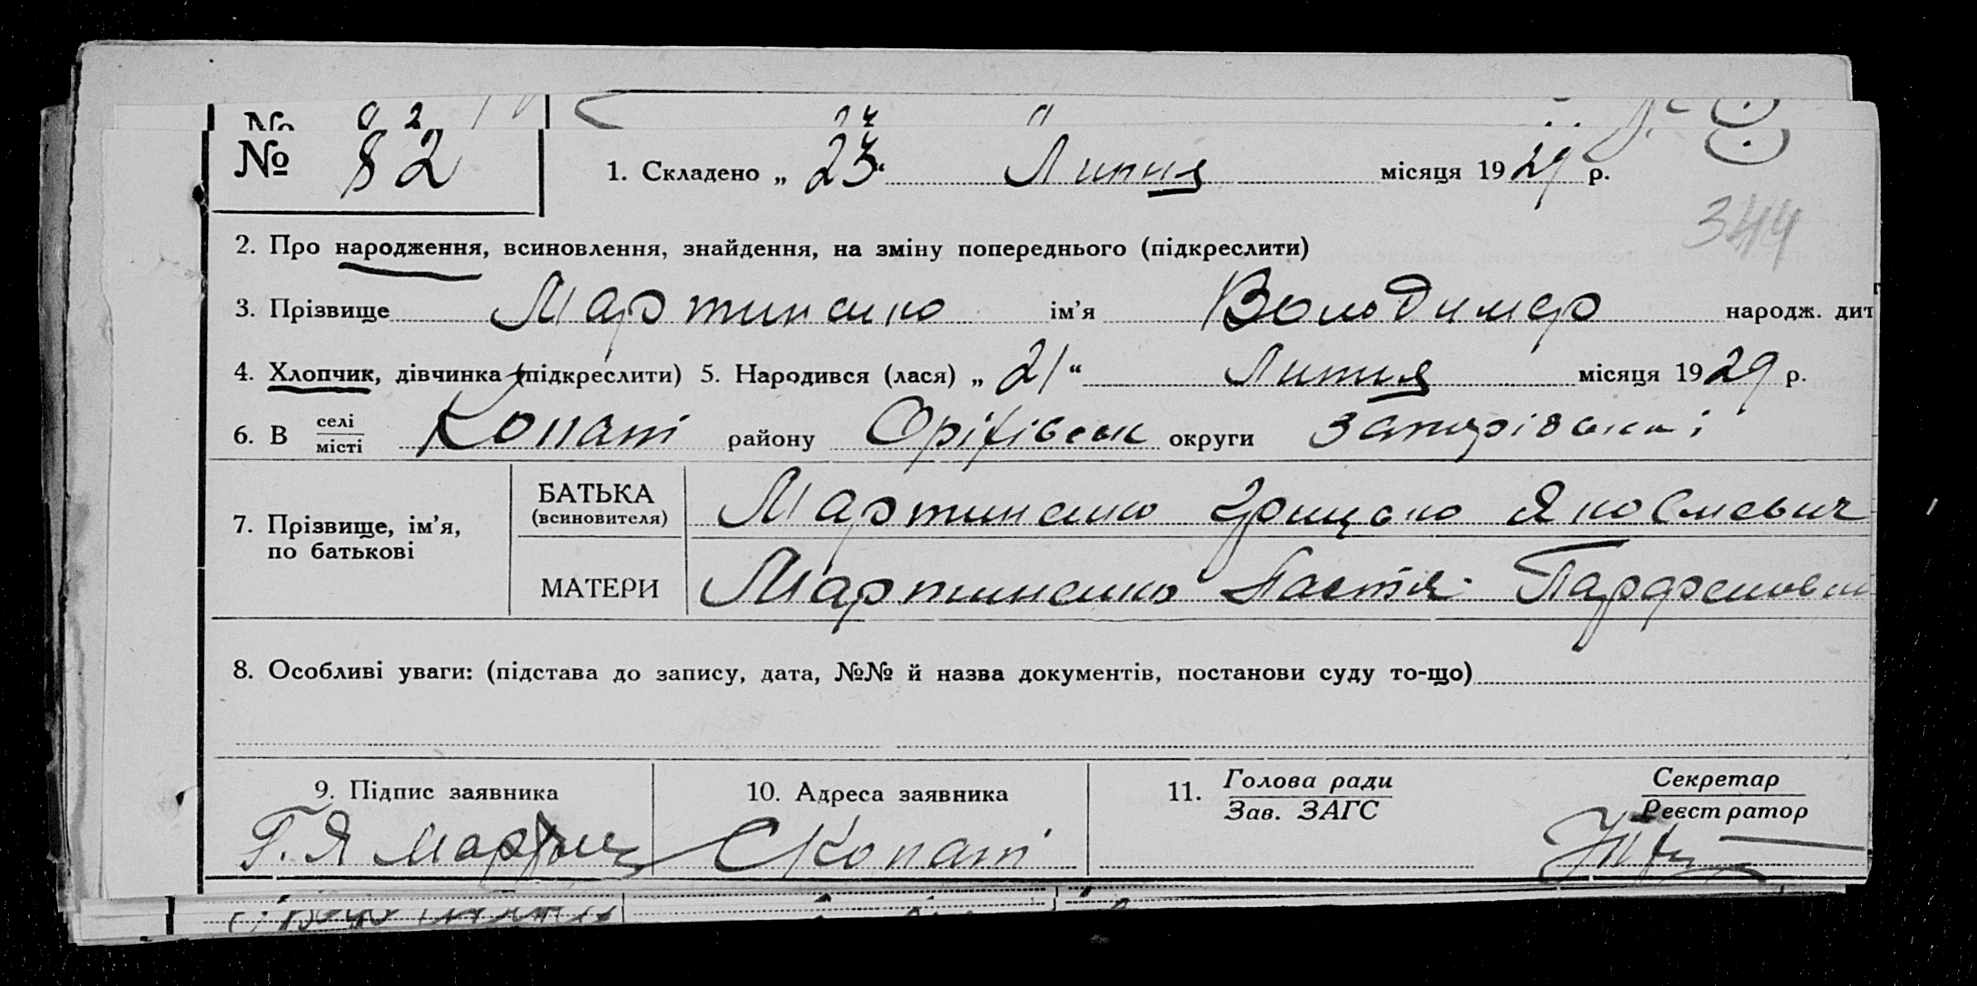 № 82
1. Складено „ 23 “ Липня місяця 1929 р.
344
2. Про народження, всиновлення, знайдення, на зміну попереднього (підкреслити)
3. Прізвище Мартиненко ім’я Володимер народж. дит
4. Хлопчик, дівчинка (підкреслити) 5. Народився (лася) „ 21 “ Липня місяця 1929 р.
6. В селі/місті Копані району Оріхівськ округи Запорізької
7. Прізвище, ім’я, по батькові
БАТЬКА (всиновителя) Мартиненко Грицько Якосмевич
МАТЕРИ Мартиненко Настя Парфеновн
8. Особливі уваги: (підстава до запису, дата, №№ й назва документів, постанови суду то-що)
9. Підпис заявника
10. Адреса заявника
11. Голова ради / Зав. ЗАГС
Секретар / Реєстратор
Г. Я Мартин
С Копані